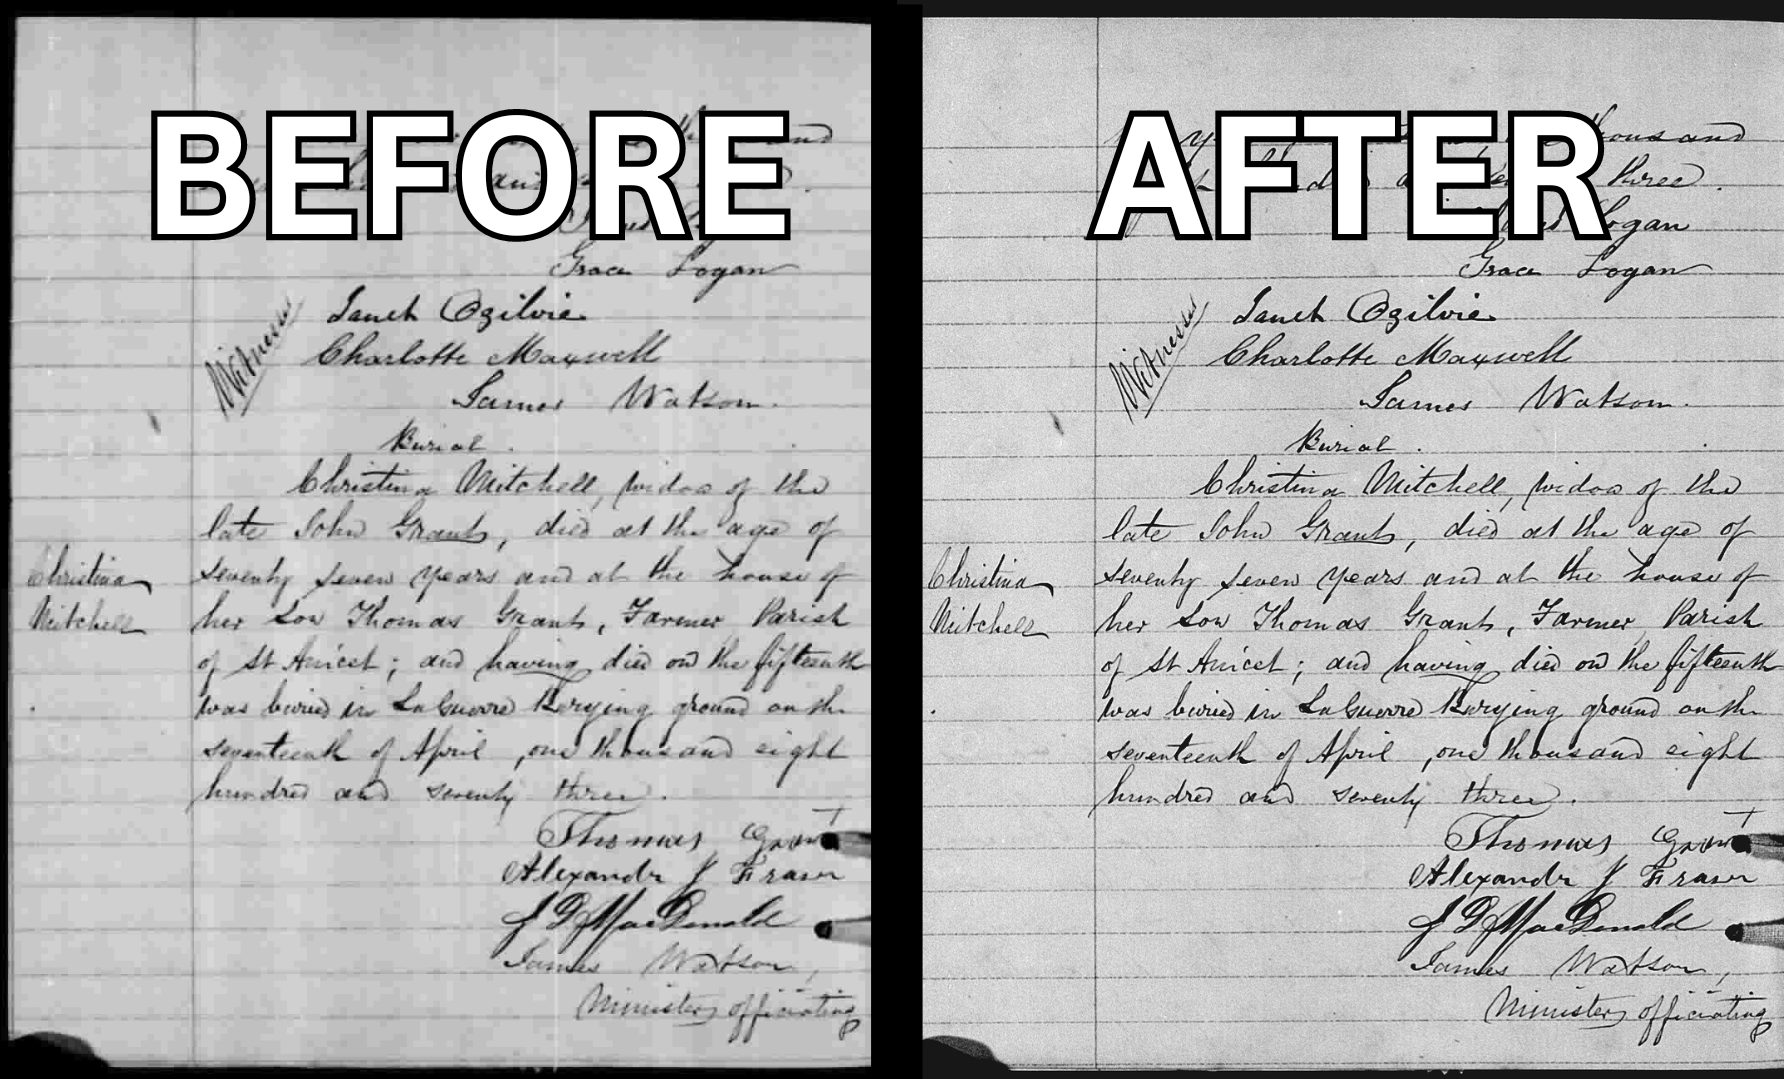 BEFORE
and
Grace Logan
Witness
Janet Ogilvie
Charlotte Maxwell
James Watson.
Burial.
Christina Mitchell, widow of the
late John Grant, died at the age of
Christina
Mitchell
seventy seven years and at the house of
her son Thomas Grant, Farmer Parish
of St Anicet; and having died on the fifteenth
was buried in LaGuerre Burying ground on the
seventeenth of April, one thousand eight
hundred and seventy three.
Thomas Grant
Alexander J Fraser
J D MacDonald
James Watson,
Minister officiating
AFTER
thousand
three.
Logan
Grace Logan
Witness
Janet Ogilvie
Charlotte Maxwell
James Watson.
Burial.
Christina Mitchell, widow of the
late John Grant, died at the age of
Christina
Mitchell
seventy seven years and at the house of
her son Thomas Grant, Farmer Parish
of St Anicet; and having died on the fifteenth
was buried in LaGuerre Burying ground on the
seventeenth of April, one thousand eight
hundred and seventy three.
Thomas Grant
Alexander J Fraser
J D MacDonald
James Watson,
Minister officiating